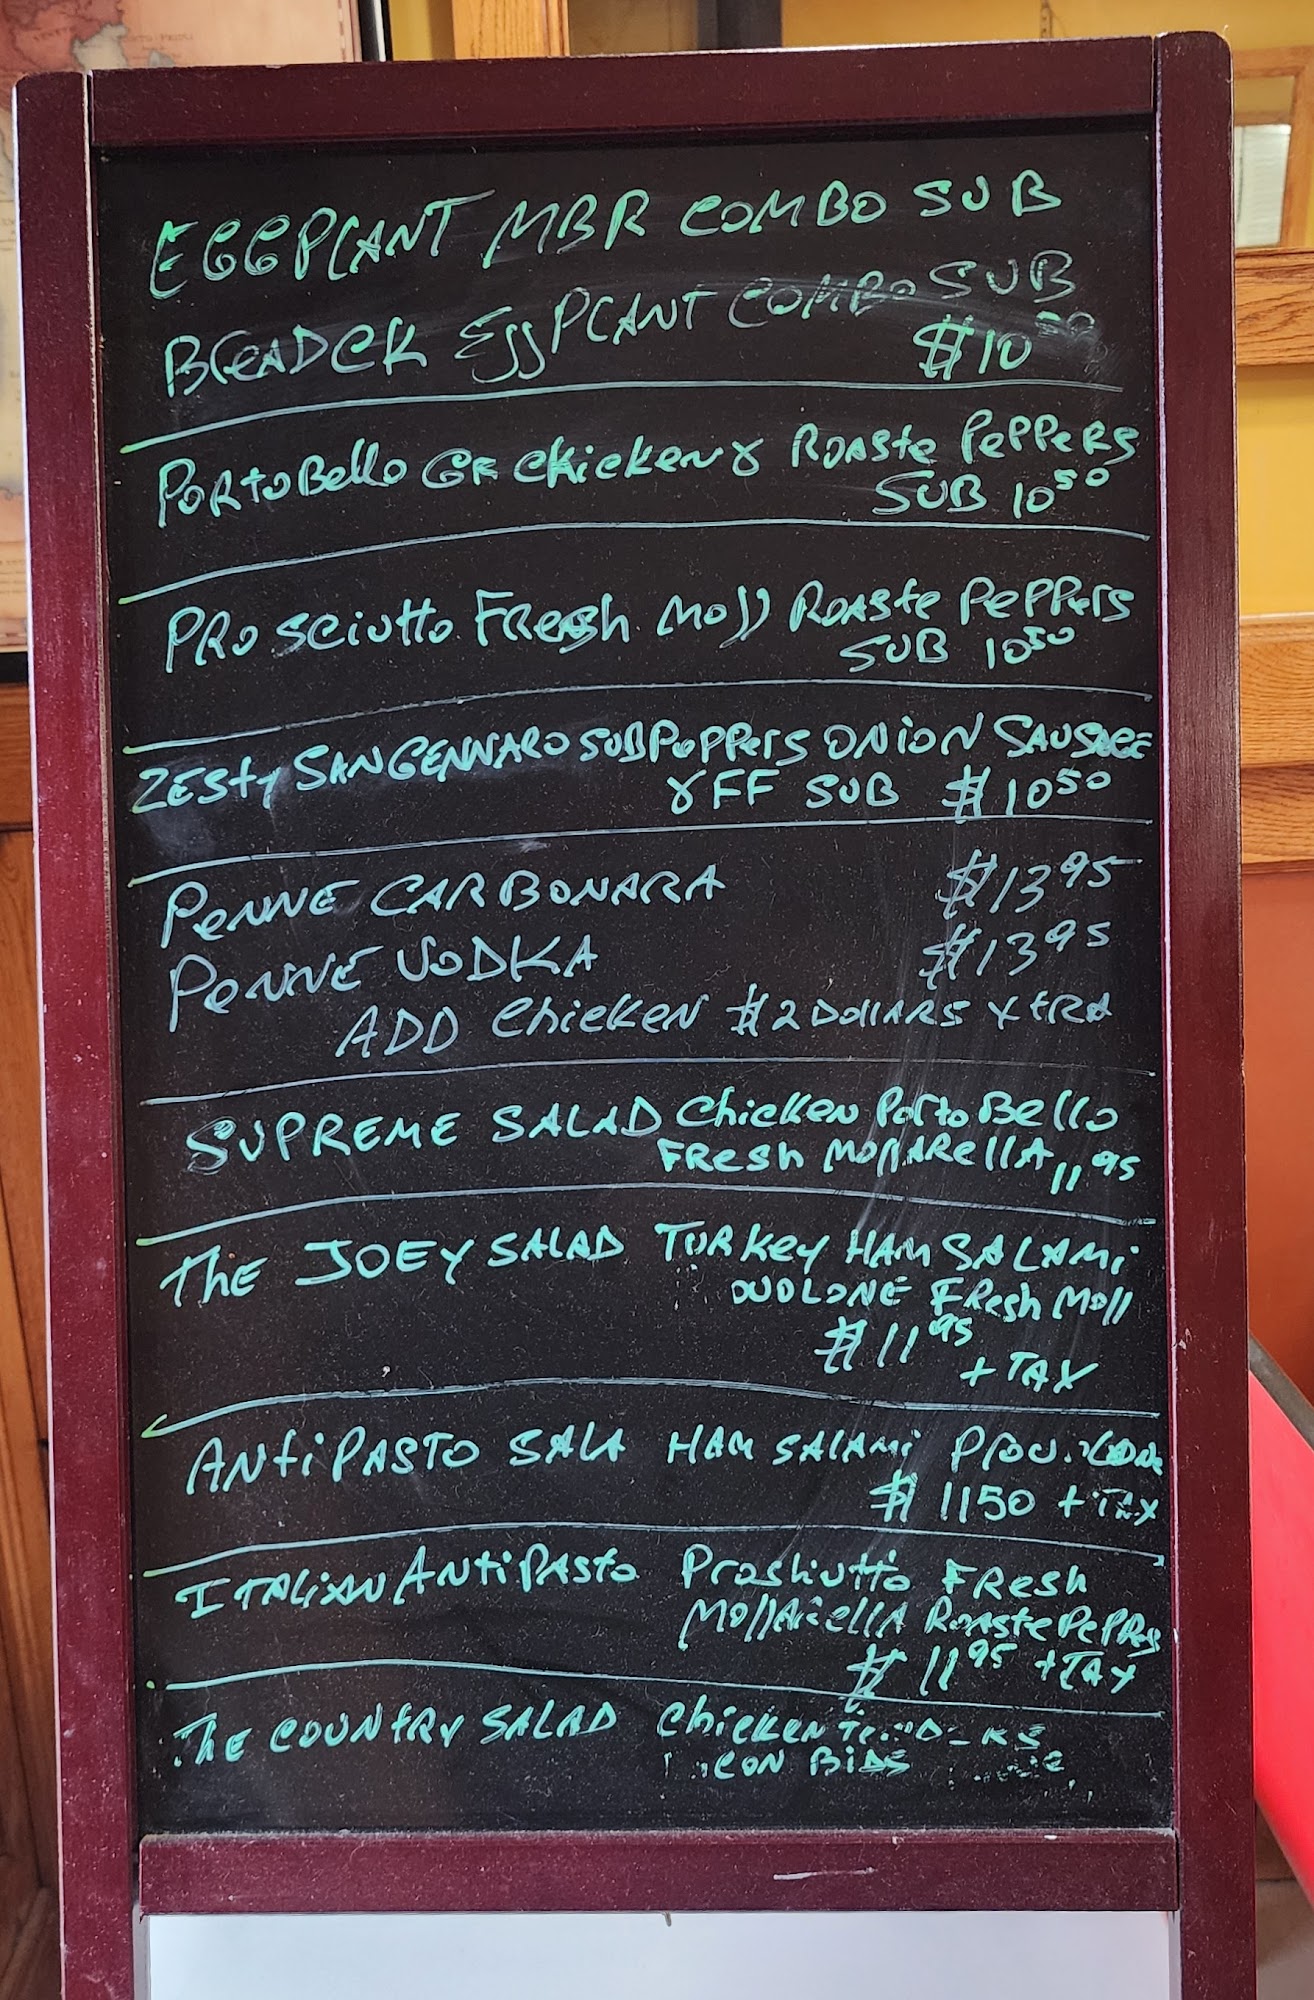 EGGPLANT MBR COMBO SUB
EggPLANT COMBO SUB
$10 50
PORTOBello GR chicken & ROASTe PePPeRS
SUB 10 50
PROSCiutto FResh Mozz ROASte PePPeRS
SUB 10 50
ZESty SANGENNARO SUB PePPeRS ONiON SAUSAGE
& FF SUB $10 50
PeNNE CARBONARA $13 95
PeNNE VODKA $13 95
ADD ChicKeN $2 DollARS XtRA
SUPREME SALAD Chicken PortoBello
FResh MozzARellA 11 95
The JOEY SALAD TURKey HAM SALAMi
FResh Mozz
$11 95
+ TAX
ANtiPASTO SALA HAM SALAMi
$ 11 50 + TAX
ITALiAN ANtiPAsto FResh
MozzArellA ROASte PePPeRs
$ 11 95 + TAX
The COUNtRY SALAD Chicken